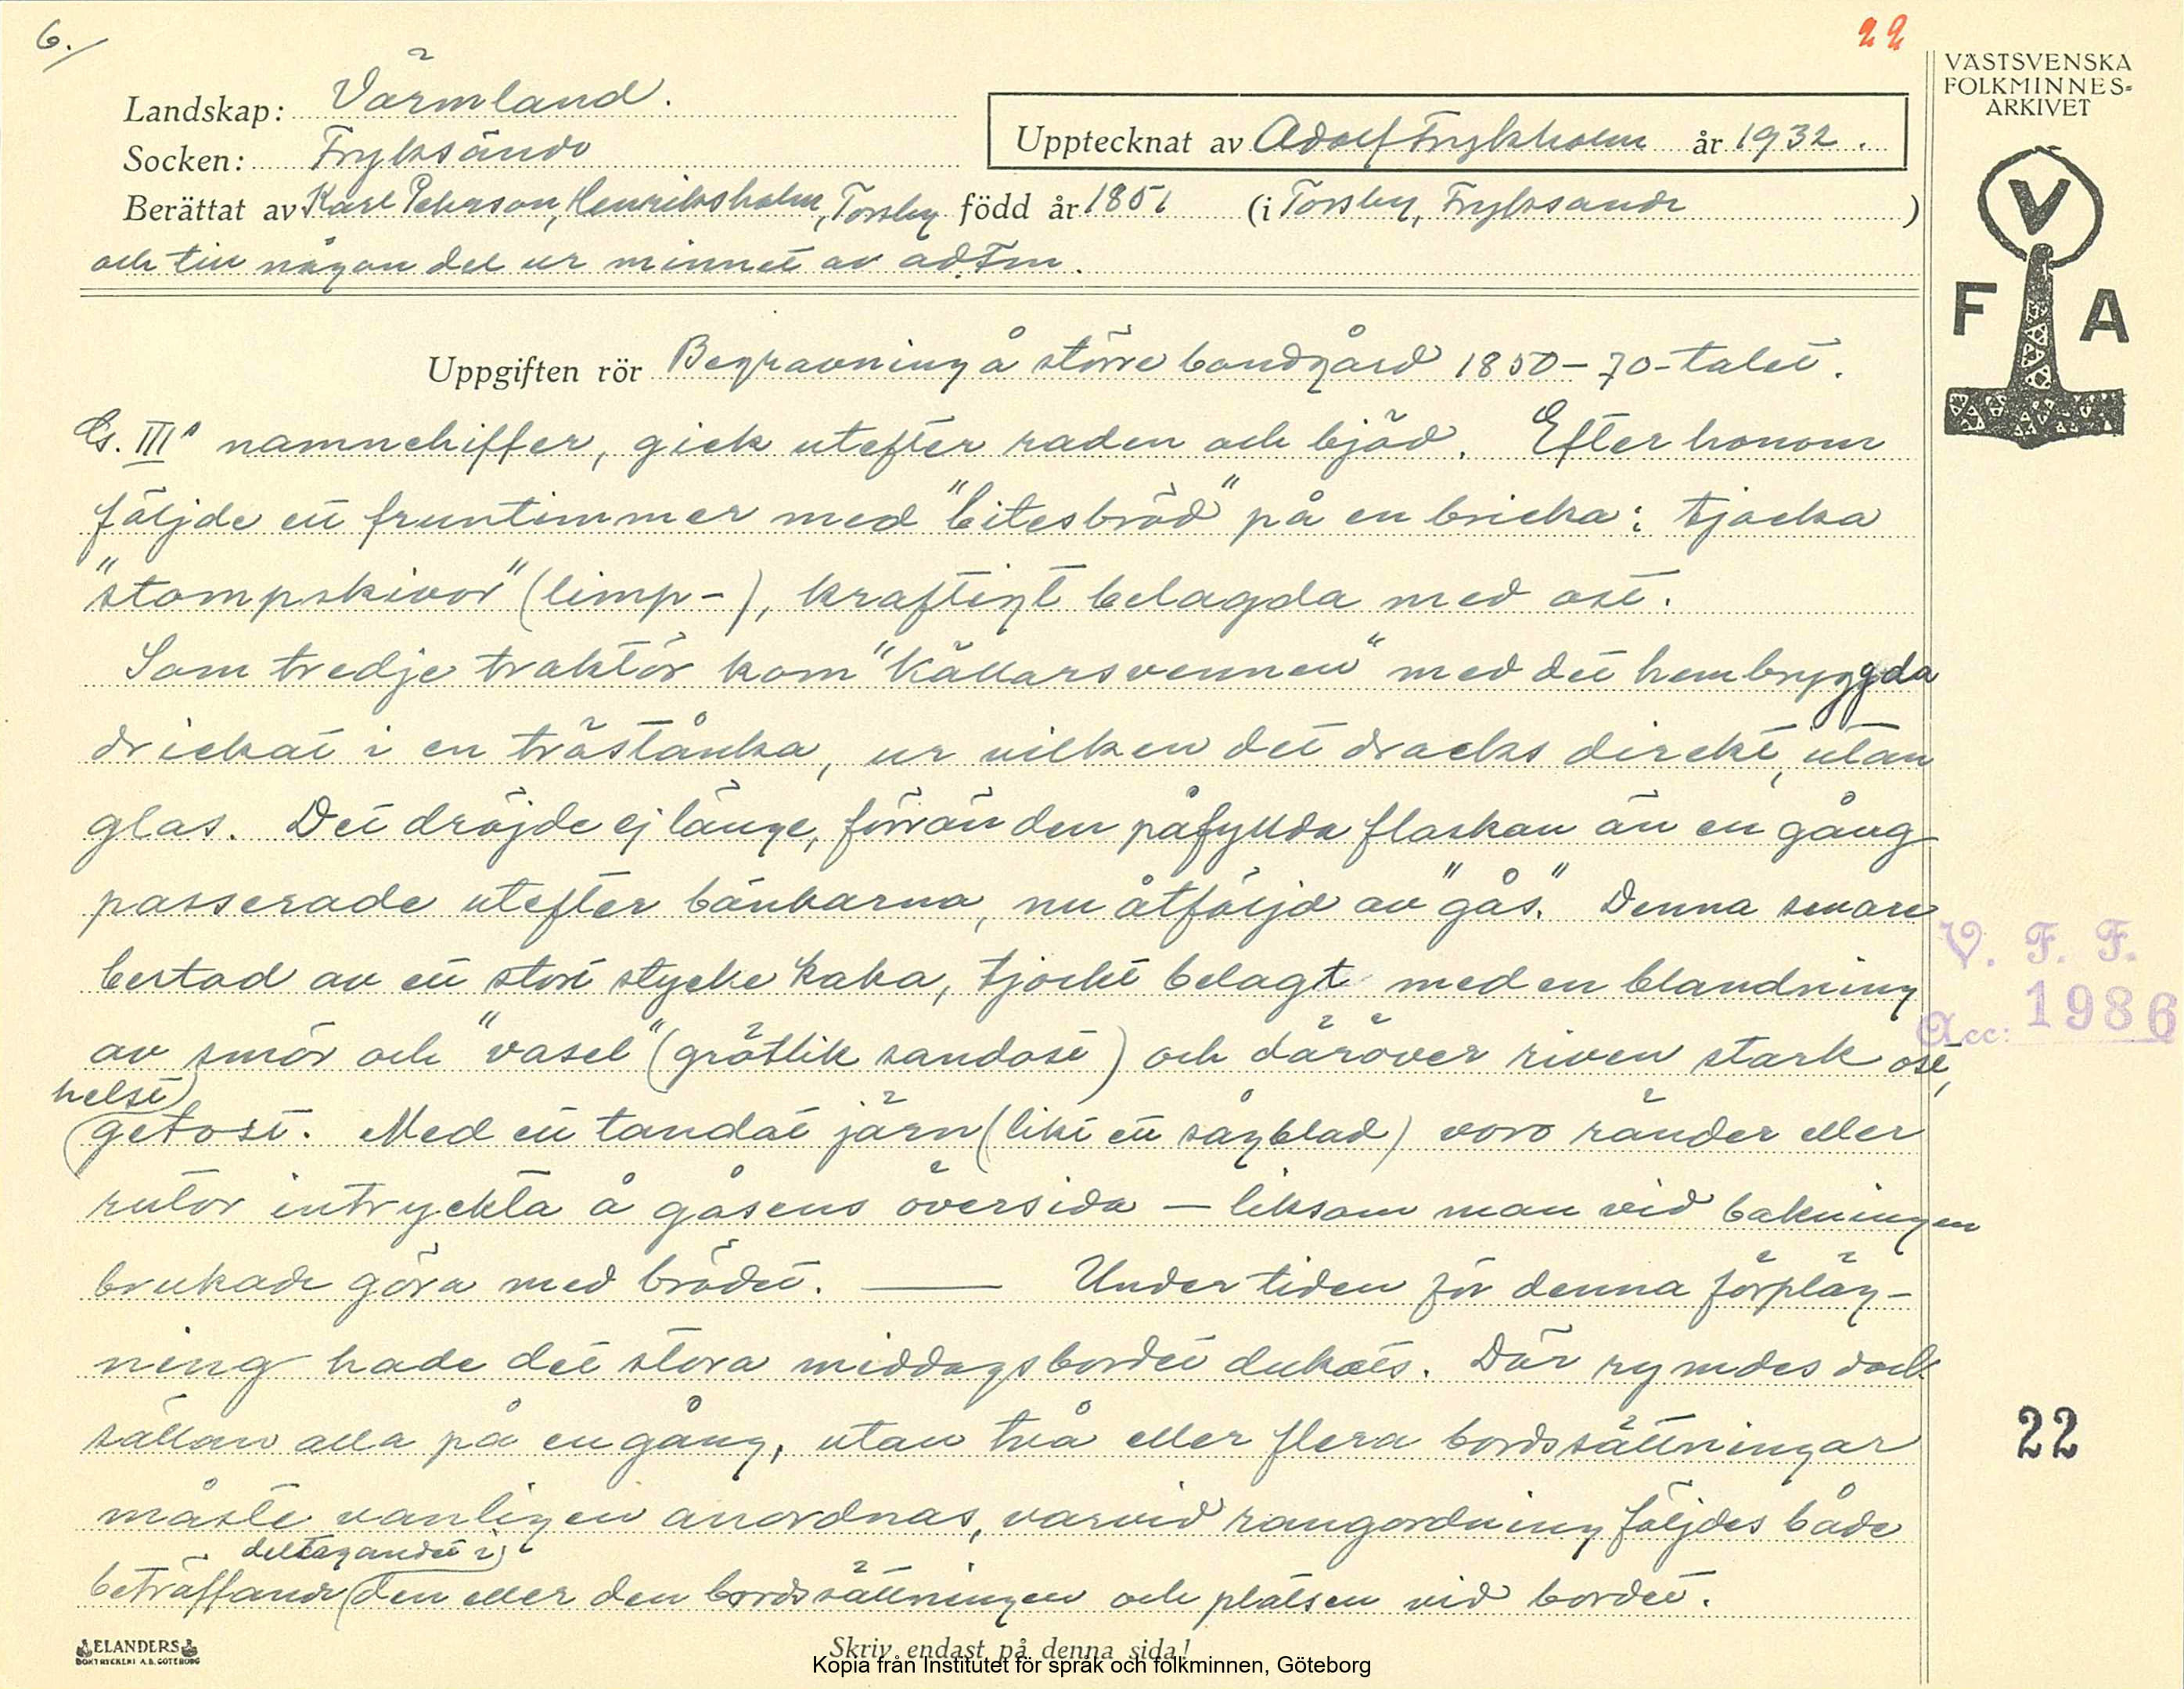 6.
22
VÄSTSVENSKA
FOLKMINNES=
ARKIVET
Landskap: Värmland.
Socken: Fryksände
Upptecknat av Adolf Frykholm år 1932.
Berättat av Karl Peterson, Henriksholm, Torsby född år 1851 (i Torsby, Fryksände)
och till någon del ur minnet av ad. Fm.
V
F A
Uppgiften rör Begravning å större bondgård 1850-70-talet.
G. III:s namnchiffer, gick utefter raden och bjöd. Efter honom
följde ett fruntimmer med "bitesbröd" på en bricka: tjocka
"stompskivor" (limp-), kraftigt belagda med ost.
Som tredje traktör kom "källarsvennen" med det hembryggda
drickat i en trästånka, ur vilken det dracks direkt, utan
glas. Det dröjde ej länge, förrän den påfyllda flaskan än en gång
passerade utefter bänkarna, nu åtföljd av "gås". Denna senare
bestod av ett stort stycke kaka, tjockt belagt med en blandning
av smör och "vasel" (grötlik sandost) och däröver riven stark ost,
helst
getost. Med ett tandat järn (likt ett sågblad) voro ränder eller
rutor intryckta å gåsens översida — liksom man vid bakningen
brukade göra med brödet. — Under tiden för denna förpläg-
ning hade det stora middagsbordet dukats. Där rymdes dock
sällan alla på en gång, utan två eller flera bordssättningar
måste vanligen anordnas, varvid rangordning följdes både
deltagandet i
beträffande den eller den bordssättningen och platsen vid bordet.
V. F. F.
Acc: 1986
22
ELANDERS
BOKTRYCKERI A.B. GÖTEBORG
Skriv endast på denna sida!
Kopia från Institutet för språk och folkminnen, Göteborg